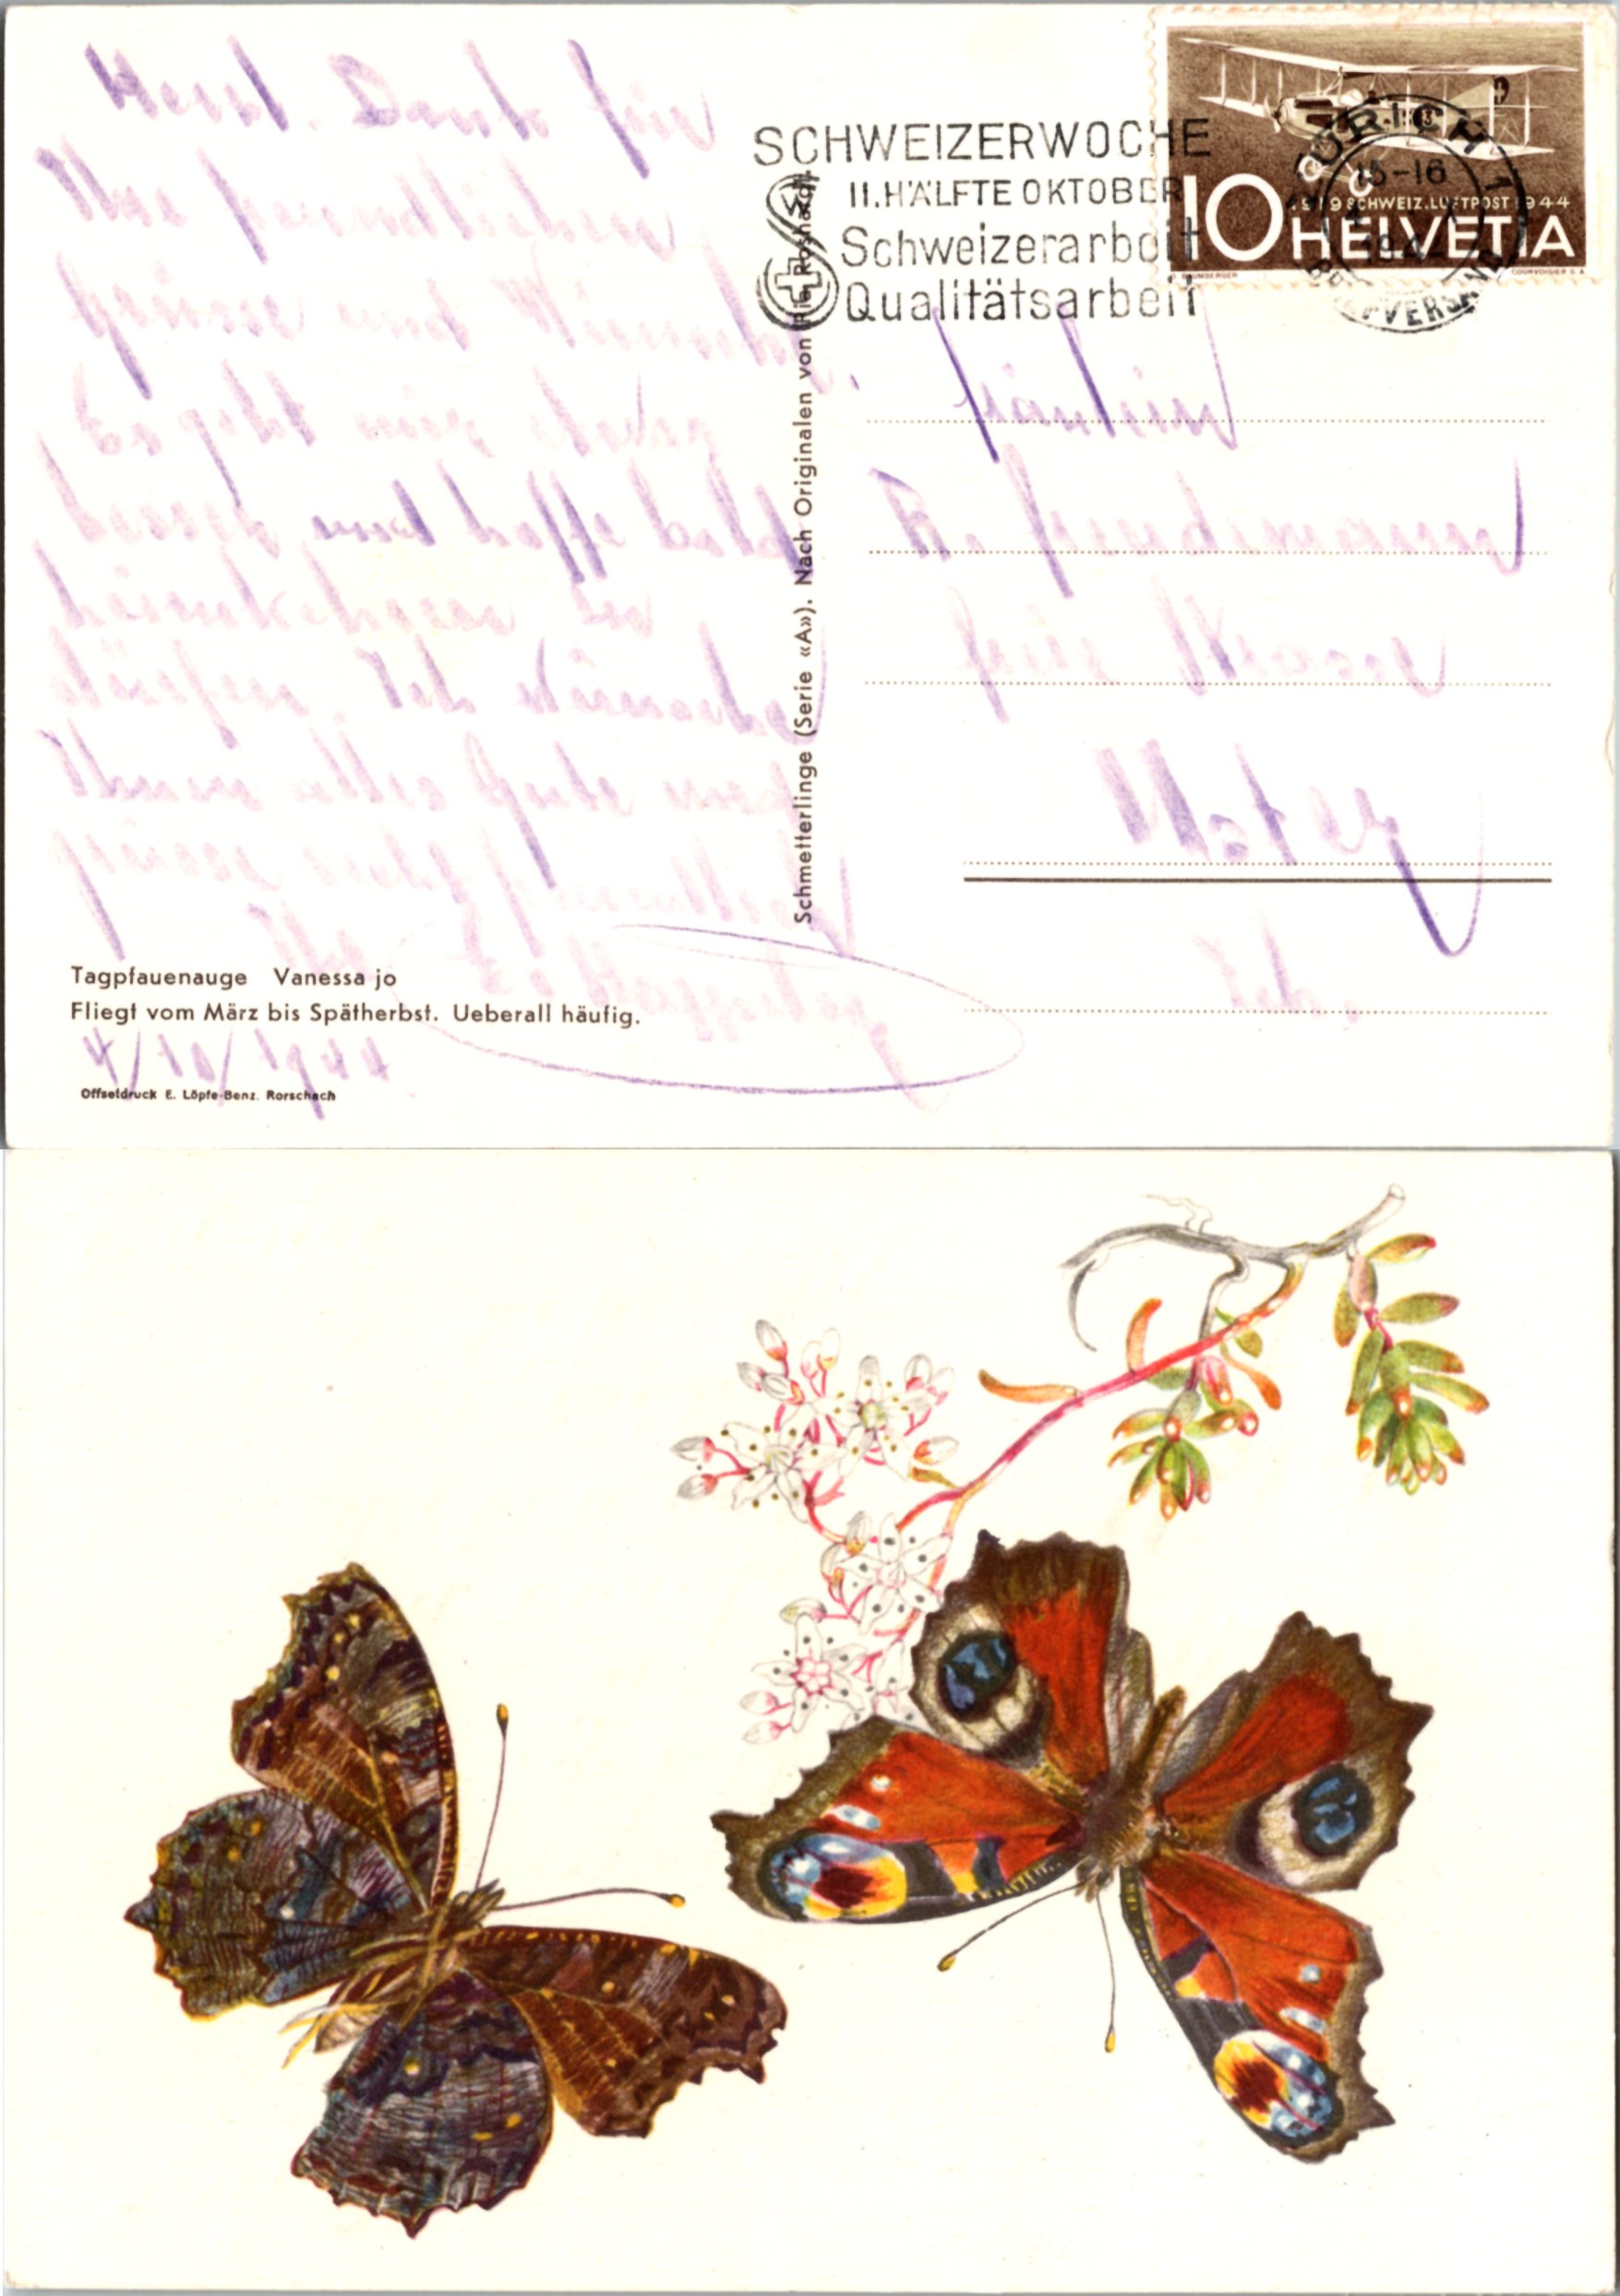 Herzl. Dank für
Ihre freundlichen
Grüsse und Wünsche.
Es geht mir etwas
besser und hoffe bald
heimkehren zu
dürfen. Ich wünsche
Ihnen alles Gute und
grüsse recht freundlich
Ihr
4/10/1944
Tagpfauenauge Vanessa jo
Fliegt vom März bis Spätherbst. Ueberall häufig.
Offsetdruck E. Löpfe-Benz. Rorschach
Schmetterlinge (Serie «A»). Nach Originalen von
SCHWEIZERWOCHE
II. HÄLFTE OKTOBER
Schweizerarbeit
Qualitätsarbeit
ZÜRICH 1
15-16
BRIEFVERSAND
1919 SCHWEIZ. LUFTPOST 1944
10 HELVETIA
BAUMBERGER
COURVOISIER S.A.
Fräulein